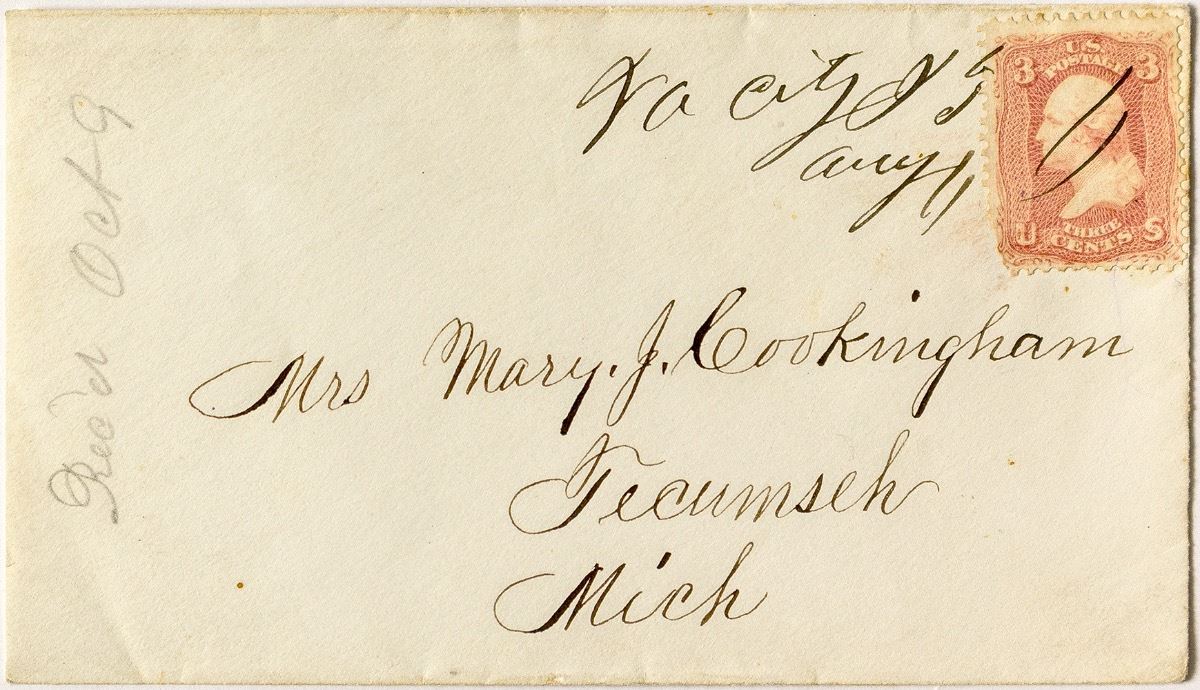 Va City I T
Aug 11
3 US 3
POSTAGE
U THREE S
CENTS
Mrs Mary. J. Cookingham
Tecumseh
Mich
Rec'd Oct 9